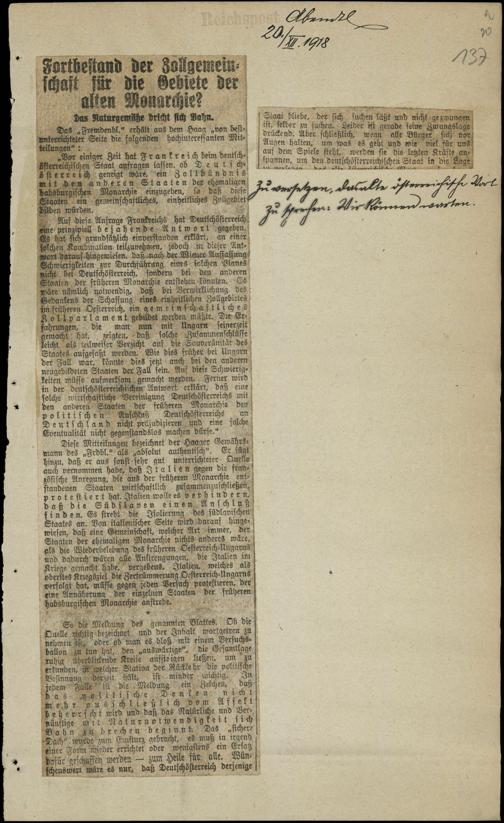 Reichspost
Abendbl.
20./XII. 1918
137
Fortbestand der Zollgemein-
schaft für die Gebiete der
alten Monarchie?
Das Naturgemäße bricht sich Bahn.
Das „Fremdenbl.“ erhält aus dem Haag „von best-
unterrichteter Seite die folgenden hochinteressanten Mit-
teilungen“:
„Vor einiger Zeit hat Frankreich beim deutsch-
österreichischen Staat anfragen lassen, ob Deutsch-
österreich geneigt wäre, ein Zollbündnis
mit den anderen Staaten der ehemaligen
habsburgischen Monarchie einzugehen, so daß diese
Staaten ein gemeinsames, einheitliches Zollgebiet
bilden würden.
Auf diese Anfrage Frankreichs hat Deutschösterreich
eine prinzipiell bejahende Antwort gegeben.
Es hat sich grundsätzlich einverstanden erklärt, an einer
solchen Kombination teilzunehmen, jedoch in dieser Ant-
wort darauf hingewiesen, daß nach der Wiener Auffassung
Schwierigkeiten zur Durchführung eines solchen Planes
nicht bei Deutschösterreich, sondern bei den anderen
Staaten der früheren Monarchie entstehen könnten. Es
wäre nämlich notwendig, daß bei Verwirklichung des
Gedankens der Schaffung eines einheitlichen Zollgebietes
im früheren Oesterreich, ein gemeinschaftliches
Zollparlament gebildet werden müßte. Die Er-
fahrungen, die man nun mit Ungarn seinerzeit
gemacht hat, zeigten, daß solche Zusammenschlüsse
leicht als teilweiser Verzicht auf die Souveränität des
Staates aufgefaßt werden. Wie dies früher bei Ungarn
der Fall war, könnte dies jetzt auch bei den anderen
neugebildeten Staaten der Fall sein. Auf diese Schwierig-
keiten müsse aufmerksam gemacht werden. Ferner wird
in der deutschösterreichischen Antwort erklärt, daß eine
solche wirtschaftliche Vereinigung Deutschösterreichs mit
den anderen Staaten der früheren Monarchie den
politischen Anschluß Deutschösterreichs an
Deutschland nicht präjudizieren und eine solche
Eventualität nicht gegenstandslos machen dürfe.“
Diese Mitteilungen bezeichnet der Haager Gewährs-
mann des „Frdbl.“ als „absolut authentisch“. Er fügt
hinzu, daß er aus sonst sehr gut unterrichteter Quelle
auch vernommen habe, daß Italien gegen die fran-
zösische Anregung, die aus der früheren Monarchie ent-
standenen Staaten wirtschaftlich zusammenzuschließen,
protestiert hat. Italien wolle es verhindern,
daß die Südslaven einen Anschluß
finden. Es strebt die Isolierung des südslavischen
Staates an. Von italienischer Seite wird darauf hinge-
wiesen, daß eine Gemeinschaft, welcher Art immer, der
Staaten der ehemaligen Monarchie nichts anderes wäre,
als die Wiederbelebung des früheren Oesterreich-Ungarns
und dadurch wären alle Anstrengungen, die Italien im
Kriege gemacht habe, vergebens. Italien, welches als
oberstes Kriegsziel die Zertrümmerung Oesterreich-Ungarns
verfolgt hat, müsse gegen jeden Versuch protestieren, der
eine Annäherung der einzelnen Staaten der früheren
habsburgischen Monarchie anstrebe.
So die Meldung des genannten Blattes. Ob die
Quelle richtig bezeichnet und der Inhalt wortgetreu zu
nehmen ist, oder ob man es bloß mit einem Versuchs-
ballon zu tun hat, den „auswärtige“, die Gesamtlage
ruhig überblickende Kreise aufsteigen ließen, um zu
erkunden, in welcher Station der Rückkehr die politische
Besinnung derzeit hält, ist minder wichtig. In
jedem Falle ist die Meldung ein Zeichen, daß
das politische Denken nicht
mehr ausschließlich vom Affekt
beherrscht wird und daß das Natürliche und Ver-
nünftige mit Naturnotwendigkeit sich
Bahn zu brechen beginnt. Das „sichere
Dach“ wurde zum Einsturz gebracht, es muß in irgend
einer Form wieder errichtet oder wenigstens ein Ersatz
dafür geschaffen werden — zum Heile für alle. Wün-
schenswert wäre es nur, daß Deutschösterreich derjenige
Staat bliebe, der sich suchen läßt und nicht gezwungen
ist, selber zu suchen. Leider ist gerade seine Zwangslage
drückend. Aber schließlich, wenn alle Bürger sich vor
Augen halten, um was es geht und wie viel für uns
auf dem Spiele steht, werden sie die letzten Kräfte an-
spannen, um den deutschösterreichischen Staat in die Lage
zu versetzen, das alte österreichische Wort
zu sprechen: Wir können warten.